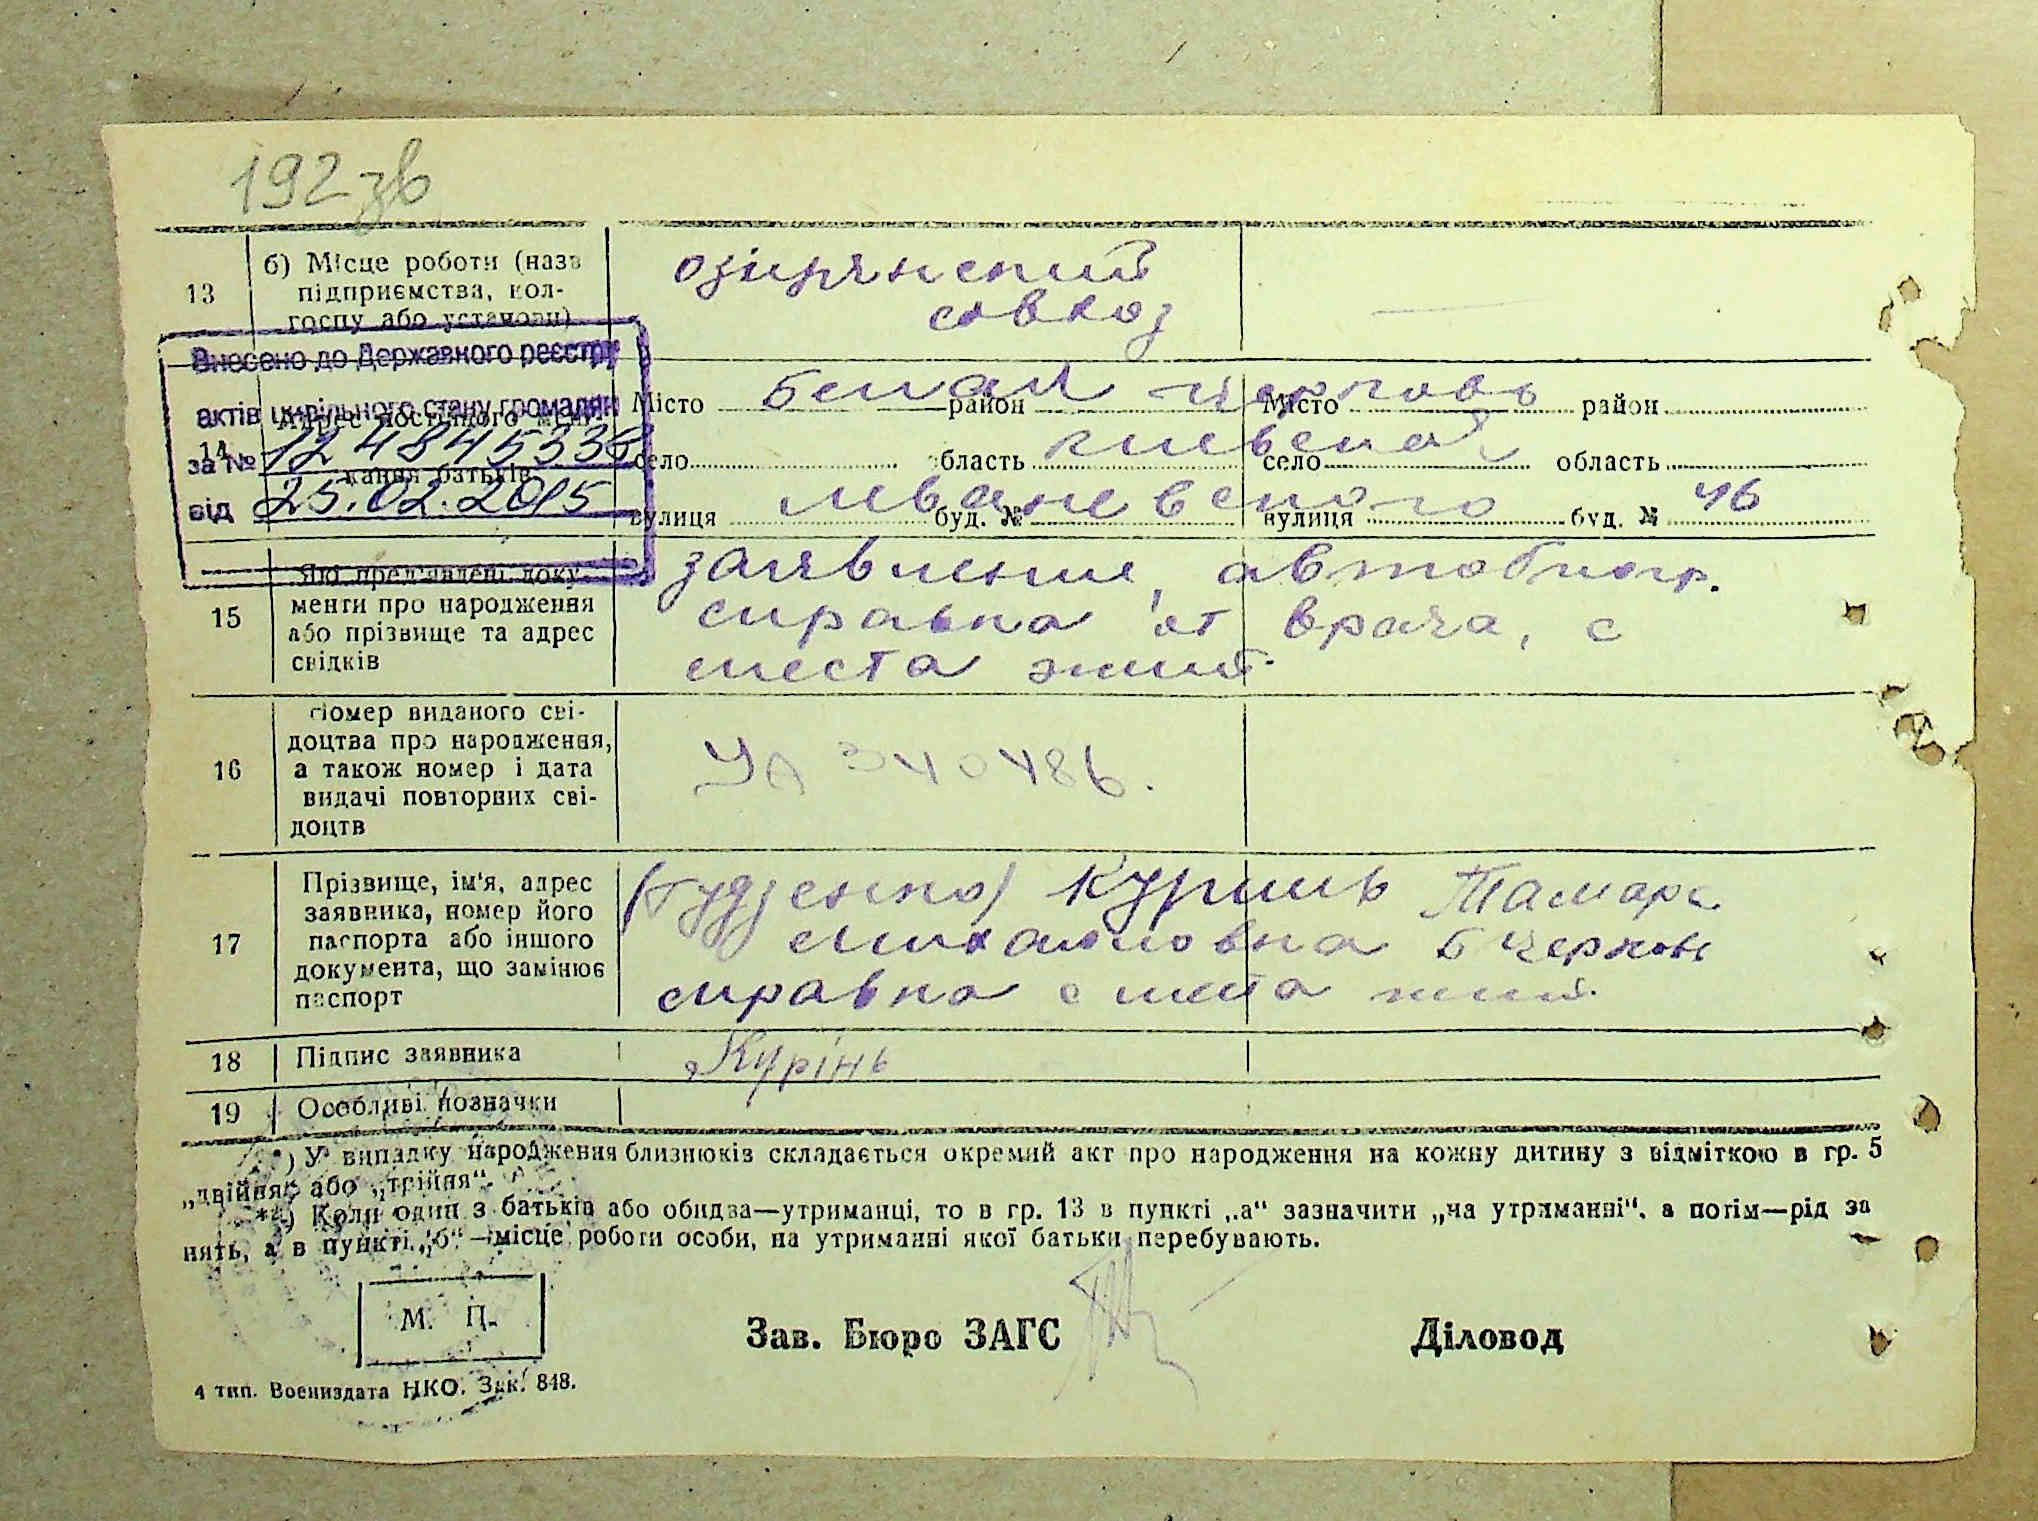 192 зв
13
б) Місце роботи (назв
підприємства, кол-
госпу або установи)
озирянский
совхоз
Внесено до Державного реєстру
актів цивільного стану громадян
за № 12484533
від 25.02.2015
14
Адрес постійного меш-
кання батьків
Місто Белая район церковь Місто район
село область киевской село область
вулиця буд. № вулиця буд. № 46
15
Які пред'явлені доку-
менти про народження
або прізвище та адрес
свідків
заявление, автобиогр.
справка от врача, с
места жит.
16
Номер виданого сві-
доцтва про народження,
а також номер і дата
видачі повторних сві-
доцтв
УА 340486.
17
Прізвище, ім'я, адрес
заявника, номер його
паспорта або іншого
документа, що замінює
паспорт
(Гудзенко) Куринь Тамара
Михайловна Б Церковь
справка с места жит.
18 Підпис заявника
Курінь
19 Особливі позначки
*) У випадку народження близнюків складається окремий акт про народження на кожну дитину з відміткою в гр. 5
„двійня“ або „трійня“.
**) Коли один з батьків або обидва—утриманці, то в гр. 13 в пункті „а“ зазначити „на утриманні“, а потім—рід за
нять, а в пункті „б“—місце роботи особи, на утриманні якої батьки перебувають.
М. П.
Зав. Бюро ЗАГС
Діловод
4 тип. Воениздата НКО. Зак. 848.